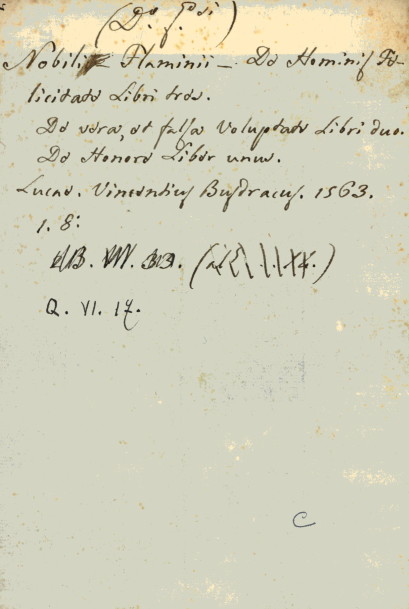 Nobilis Flaminii — De Hominis Fe-
licitate Libri tres.
De vera, et falsa Voluptate Libri duo.
De Honore Liber unus.
Lucae. Vincentius Busdracus. 1563.
1. 8:
B. VII. 33.
Q. VI. 17.
C